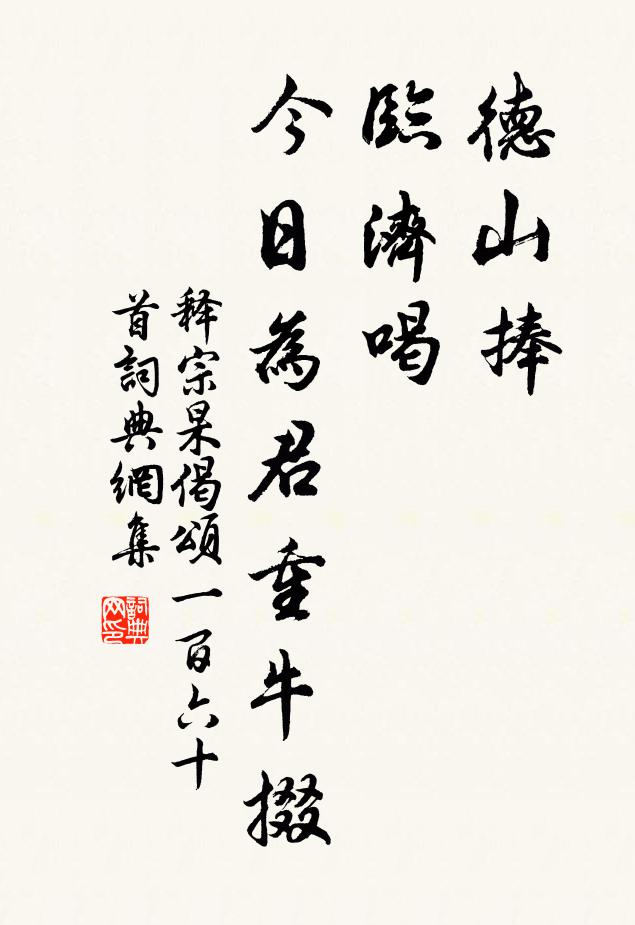 德山捧
臨濟喝
今日為君重牛掇
释宗杲偈頌一百六十
首詞典網集
詞典
网印